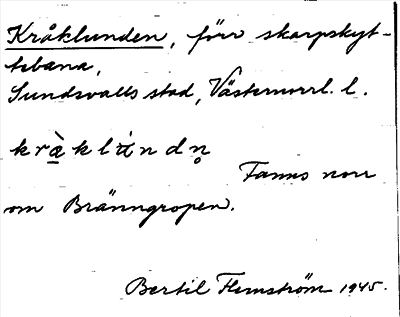 Kråklunden, förr skarpskyt-
tebana,
Sundsvalls stad, Västernorrl. l.
Fanns norr
om Bränngropen.
Bertil Flemström 1945.